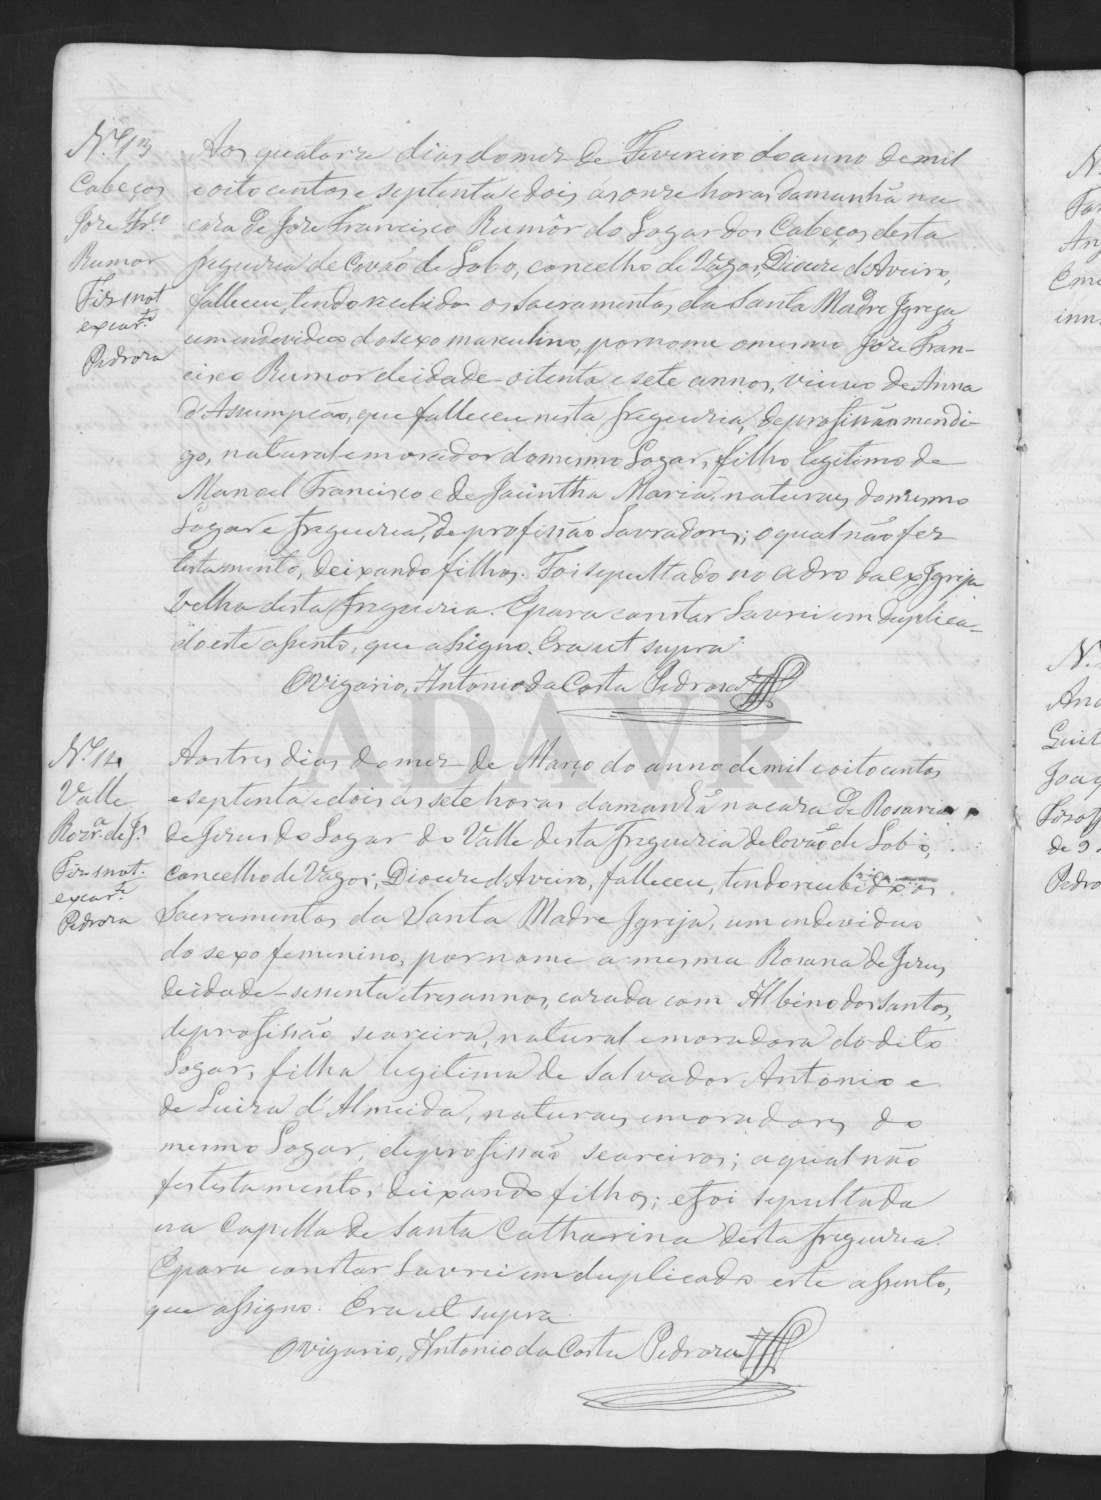 N.º 13
Cabeços
Joze Fr.co
Rumor
Fiz s not.
e xeat.te
Pedroza
Aos quatorze dias do mez de Fevereiro do anno de mil
e oito centos e septenta e dois ás onze horas da manhã na
caza de Joze Francisco Rumôr do Logar dos Cabeços desta
freguezia de Covão de Lobo, concelho de Vagos, Dioceze d'Aveiro,
falleceu, tendo recebido os sacramentos da Santa Madre Igreja
um endeviduo do sexo masculino, por nome o mesmo Joze Fran-
cisco Rumor de idade oitenta e sete annos, viuvo de Anna
d'Assumpção, que falleceu nesta freguezia, de profissão mendi-
go, natural e morador do mesmo Logar, filho legitimo de
Manoel Francisco e de Jacintha Maria, naturaes do mesmo
Logar e freguezia, de profissão Lavradores; o qual não fez
testamento, deixando filhos. Foi sepultado no adro da ex Igreja
velha desta freguezia. E para constar Lavrei em duplica-
do este assento, que assigno. Era ut supra
O vigario, Antonio da Costa Pedroza
N.º 14
Valle
Roz.a de J.s
Fiz s not.
e xeat.te
Pedroza
Aos tres dias do mez de Março do anno de mil e oito centos
e septenta e dois ás sete horas da manhã na caza de Rosaria
de Jezus do Logar do Valle desta Freguezia de Covão de Lobo,
concelho de Vagos, Dioceze d'Aveiro, falleceu, tendo recebido os
Sacramentos da Santa Madre Igreja, um endeviduo
do sexo femenino, por nome a mesma Rosaria de Jezus,
de idade sessenta e tres annos, cazada com Albino dos Santos,
de profissão seareira, natural e moradora do dito
Logar, filha legitima de Salvador Antonio e
de Luiza d'Almeida, naturaes e moradores do
mesmo Logar, de profissão seareiros; a qual não
fez testamento, deixando filhos; e foi sepultada
na Capella de Santa Catharina desta freguezia.
E para constar Lavrei em duplicado este assento,
que assigno. Era ut supra
O vigario, Antonio da Costa Pedroza
ADAVR